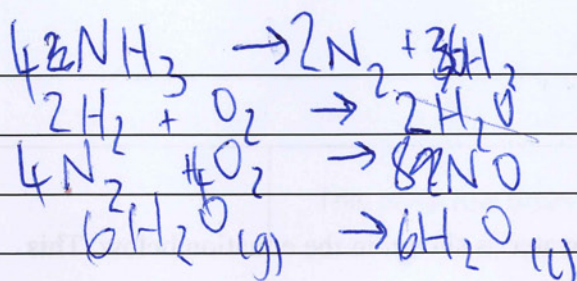 4NH₃ → 2N₂ + 6H₂
2H₂ + O₂ → 2H₂O
4N₂ 4O₂ → 8NO
6H₂O(g) → 6H₂O(l)